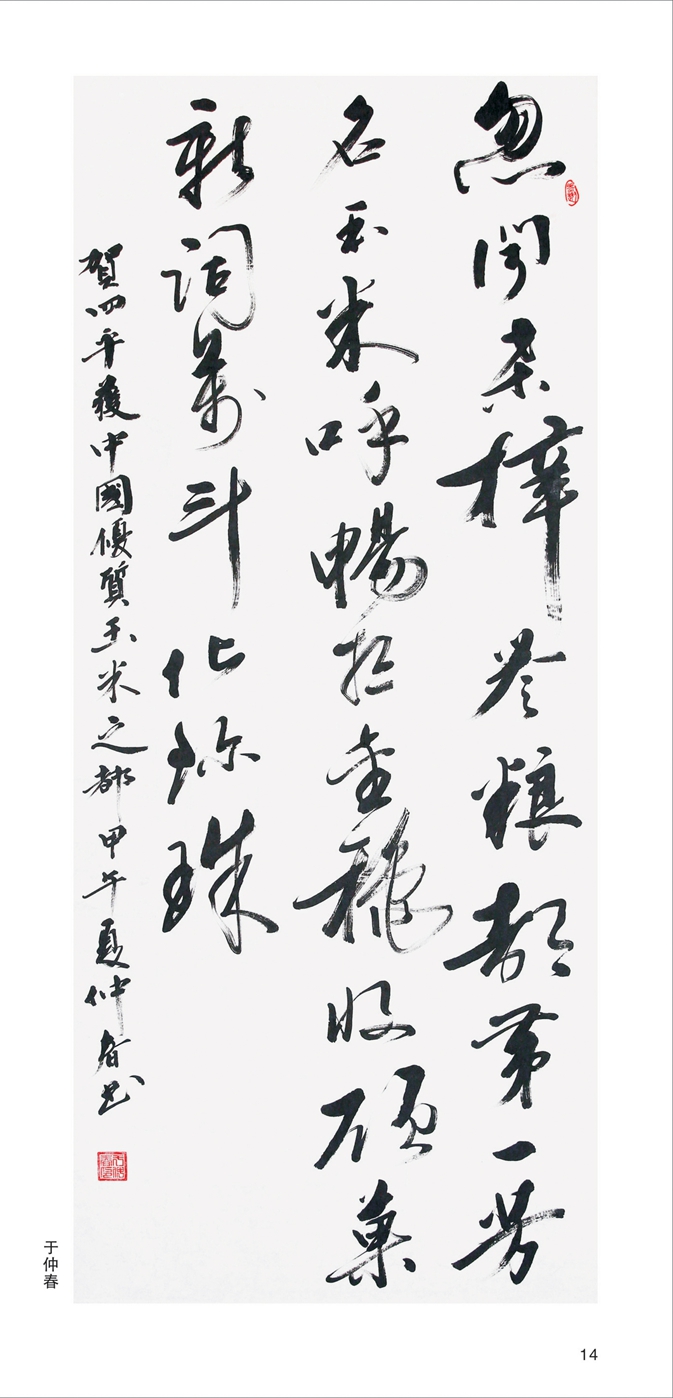 忽聞桑梓粮都第一芳
名玉米呼暢收碩菓
新詞萬斗化珍珠
賀四平獲中國優質玉米之都甲午夏仲春书
于仲春
14